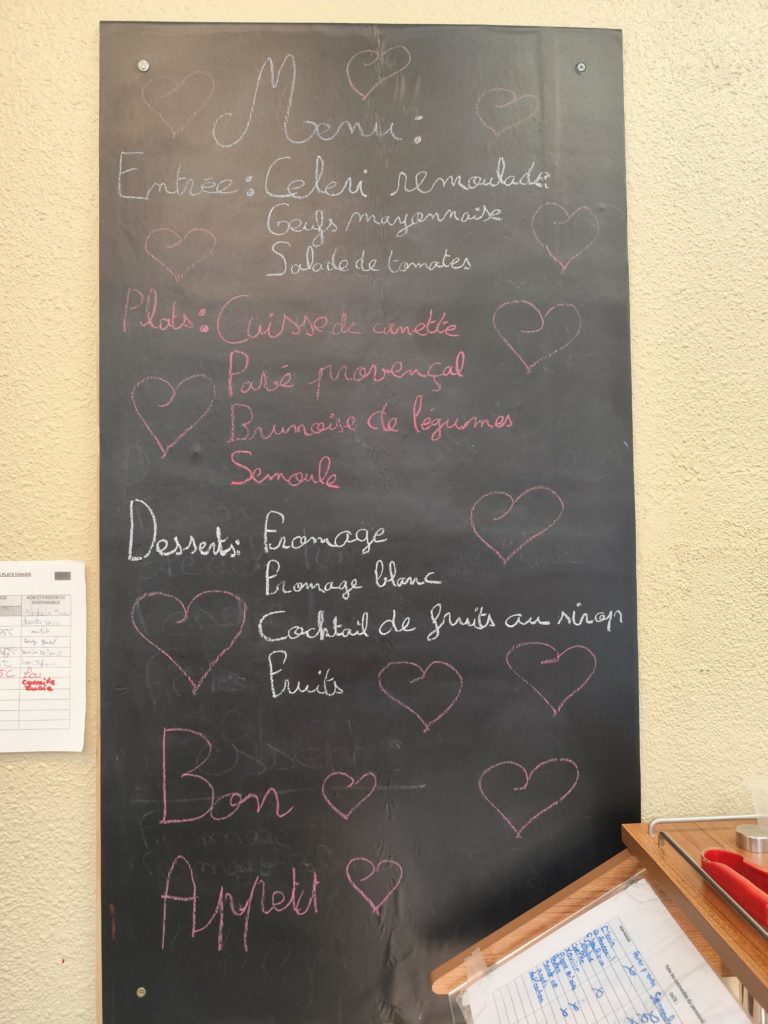 Menu:
Entrée: Celeri remoulade
Oeufs mayonnaise
Salade de tomates
Plats: Cuisse de canette
Pavé provençal
Brunoise de légumes
Semoule
Desserts: Fromage
Fromage blanc
Cocktail de fruits au sirop
Fruits
Bon
Appetit
PLATS CHAUDS
NOM ET PRENOM DU
RESPONSABLE